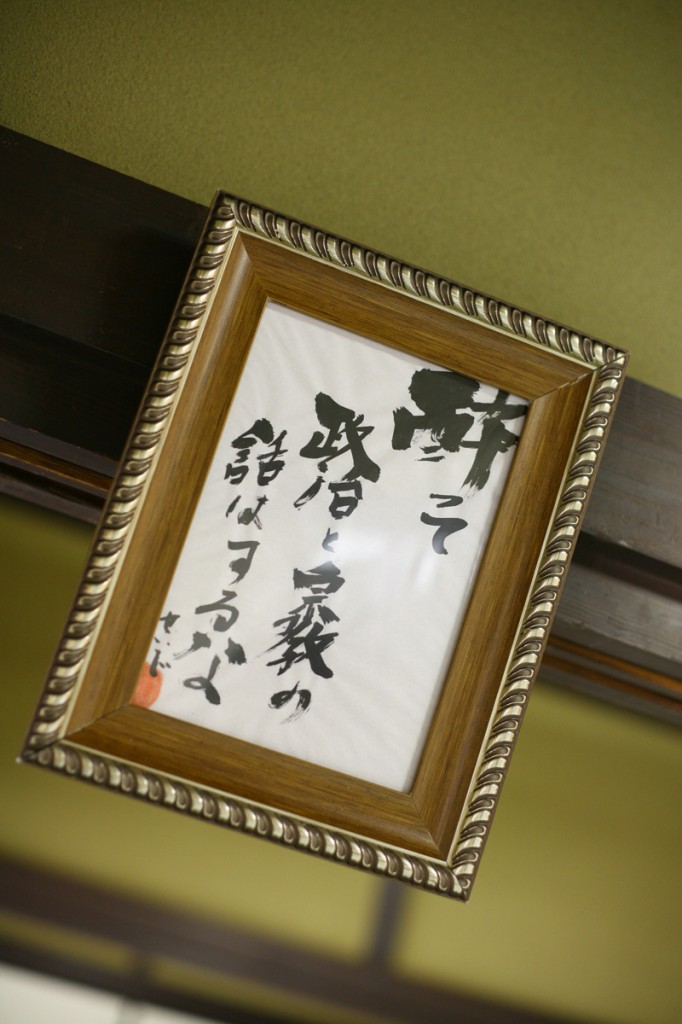 酔って
政治と宗教の
話はするなよ
せいじ